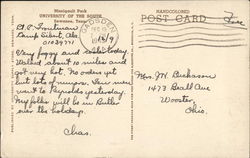 Manigault Park
UNIVERSITY OF THE SOUTH
Sewanee, Tenn.
HANDCOLORED
POST CARD
Free
GADSDEN
DEC
Camp Sibert, Ala.
Very foggy and cold today.
Walked about 10 miles and
got very hot. No orders yet
but lots of rumors. Six men
went to Reynolds yesterday.
My folks will be in Butler
over the holidays.
Chas.
Mrs. J.W. Dickason
1473 Beall Ave
Wooster,
Ohio.